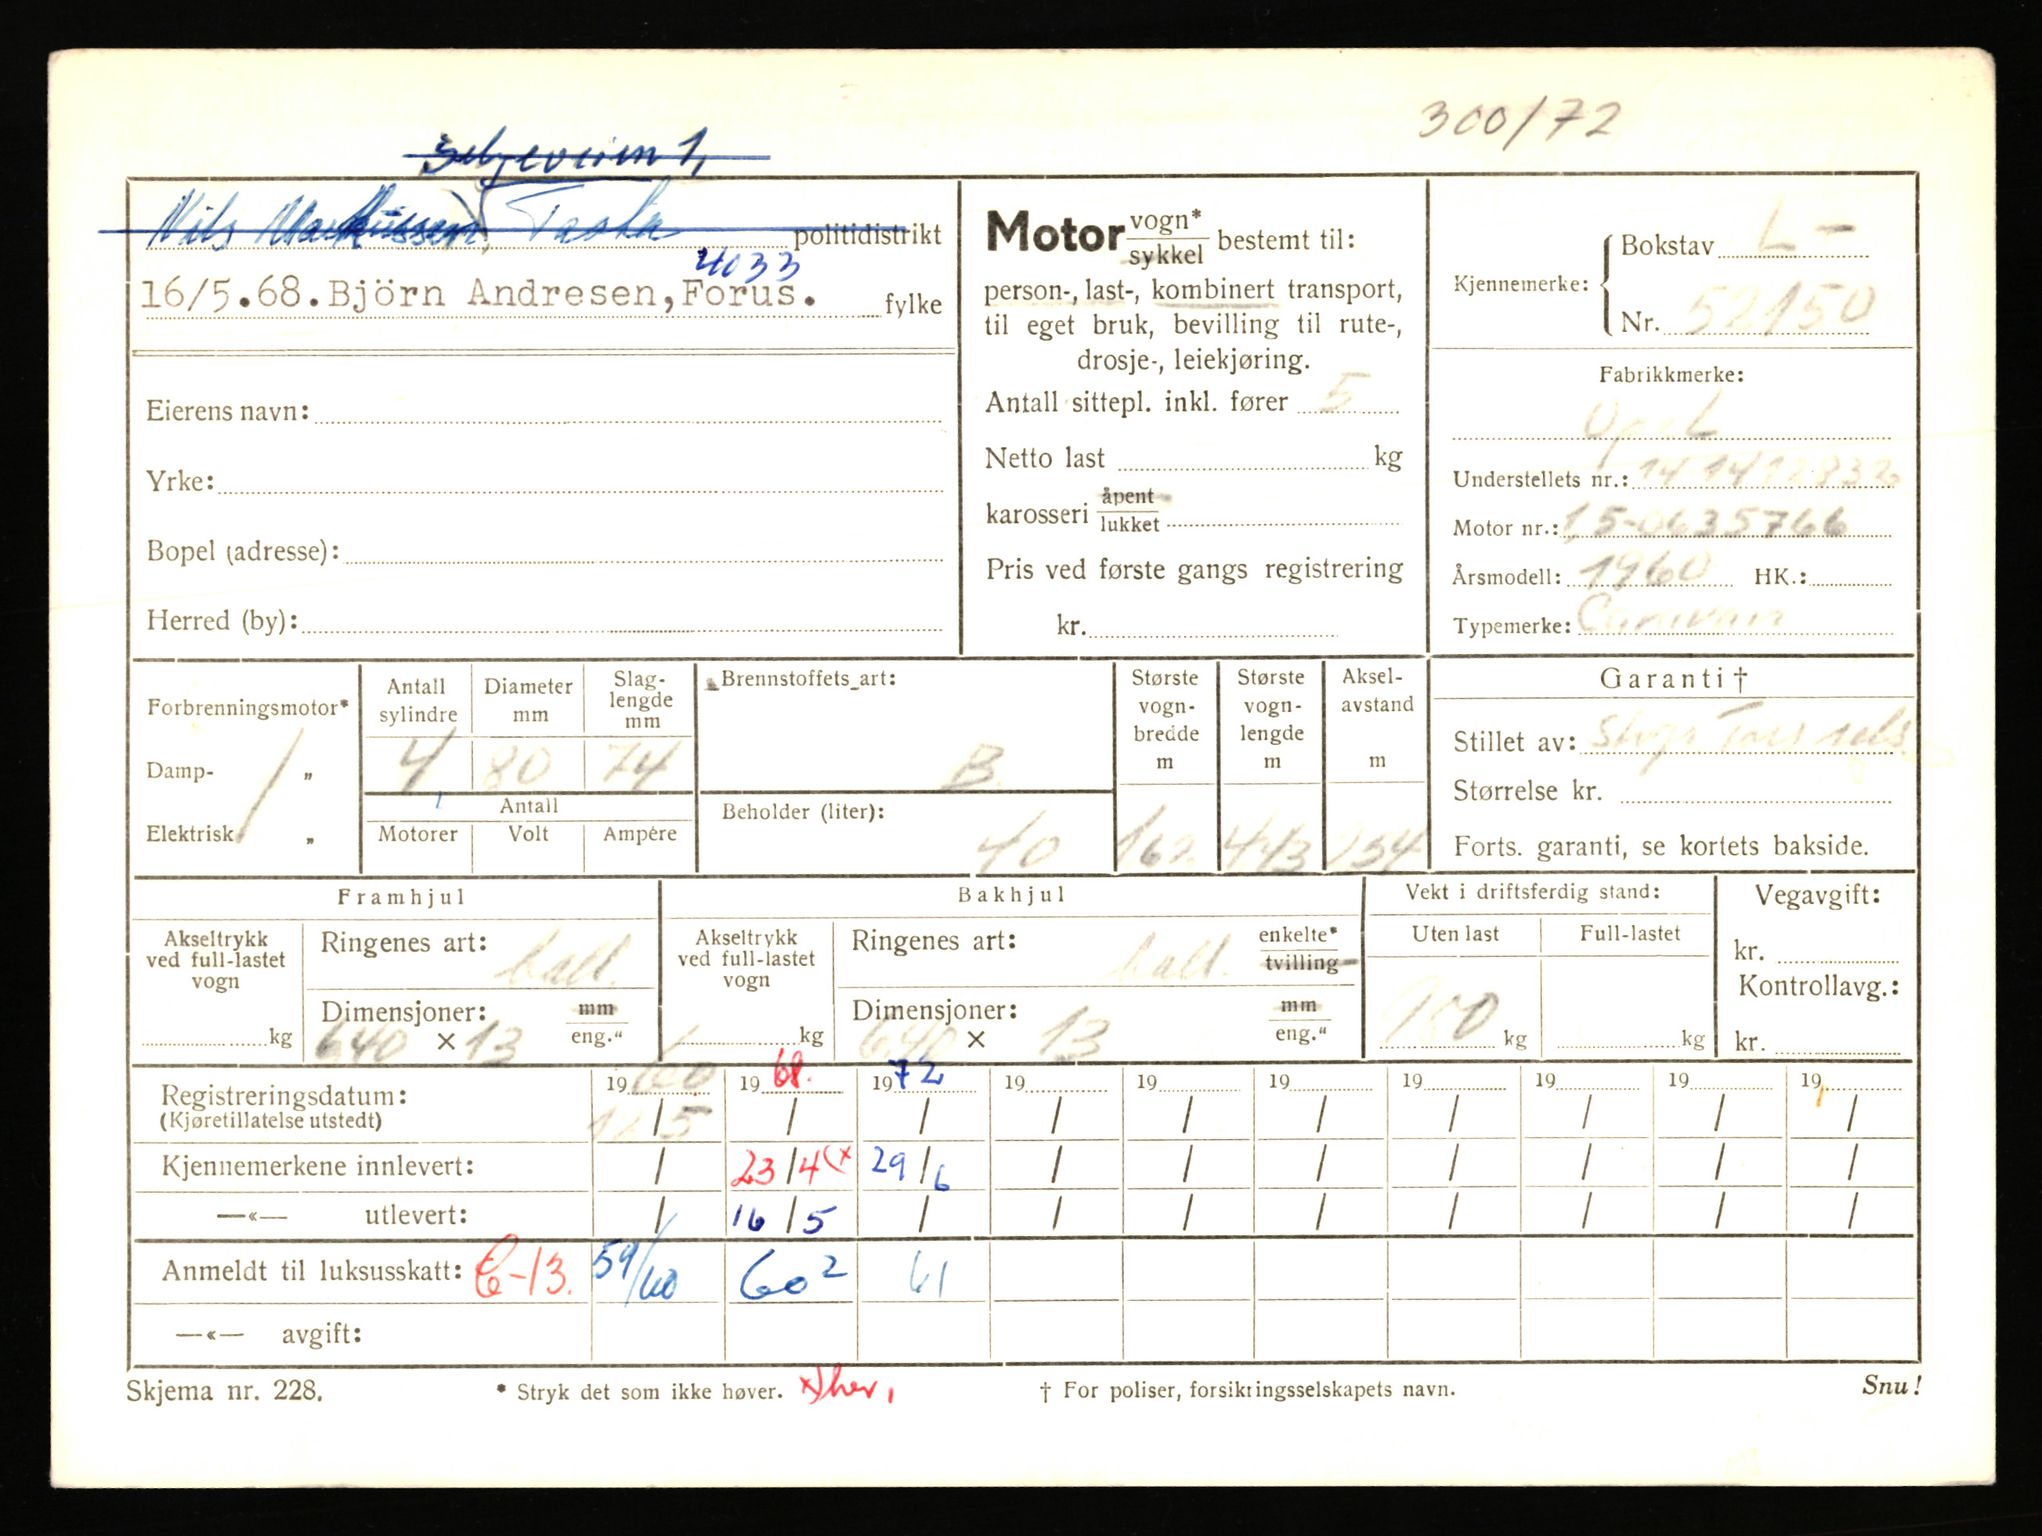 300/72
Seljeveien 1,
Nils Markussen, Tasta politidistrikt
4033
16/5.68. Björn Andresen, Forus. fylke
Eierens navn:
Yrke:
Bopel (adresse):
Herred (by):
Motor vogn* sykkel bestemt til:
person-, last-, kombinert transport,
til eget bruk, bevilling til rute-,
drosje-, leiekjøring.
Antall sittepl. inkl. fører 5
Netto last kg
karosseri åpent lukket
Pris ved første gangs registrering
kr.
Kjennemerke: Bokstav L-
Nr. 52150
Fabrikkmerke:
Opel
Understellets nr.: 14 1412832
Motor nr.: 15-0635766
Årsmodell: 1960 HK.:
Typemerke: Caravan
Forbrenningsmotor*
Damp- „
Elektrisk „
Antall sylindre
4
Diameter mm
80
Slag-lengde mm
74
Antall
Motorer Volt Ampére
Brennstoffets art:
B
Beholder (liter):
40
Største vogn-bredde m
162
Største vogn-lengde m
443
Aksel-avstand m
254
Garanti †
Stillet av:
Størrelse kr.
Forts. garanti, se kortets bakside.
Framhjul
Akseltrykk ved full-lastet vogn
kg
Ringenes art: ball.
Dimensjoner: mm
640 × 13 eng."
Bakhjul
Akseltrykk ved full-lastet vogn
kg
Ringenes art: ball. enkelte* tvilling
Dimensjoner: mm
640 × 13 eng."
Vekt i driftsferdig stand:
Uten last Full-lastet
900 kg kg
Vegavgift:
kr.
Kontrollavg.:
kr.
Registreringsdatum: 1960 1968. 1972 19 19 19 19 19 19 19
(Kjøretillatelse utstedt) 12/5 / / / / / / / / /
Kjennemerkene innlevert: / 23/4 (x 29/6 / / / / / / /
—«— utlevert: / 16/5 / / / / / / / /
Anmeldt til luksusskatt: C-13. 59/60 60² 61
—«— avgift:
Skjema nr. 228. * Stryk det som ikke høver. x) her, † For poliser, forsikringsselskapets navn. Snu!